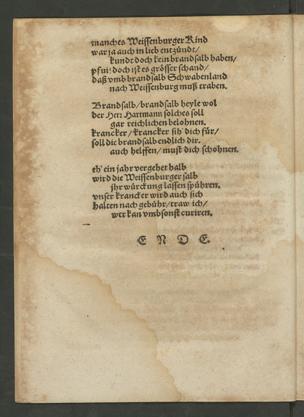 manches Weissenburger Kind
war ja auch in lieb entzündt/
kundt doch kein brandsalb haben/
pfui! doch ist es grösser schand/
daß vmb brandsalb Schwabenland
nach Weissenburg muß traben.
Brandsalb/brandsalb heyle wol
der Herr Hartmann solches soll
gar reichlichen belohnen.
krancker/krancker sih dich für/
soll die brandsalb endlich dir.
auch helffen/must dich schohnen.
eh' ein jahr vergehet halb
wird die Weissenburger salb
jhr würckung lassen spühren.
vnser krancker wird auch sich
halten nach gebühr/traw ich/
wer kan vmbsonst curiren.
ENDE.